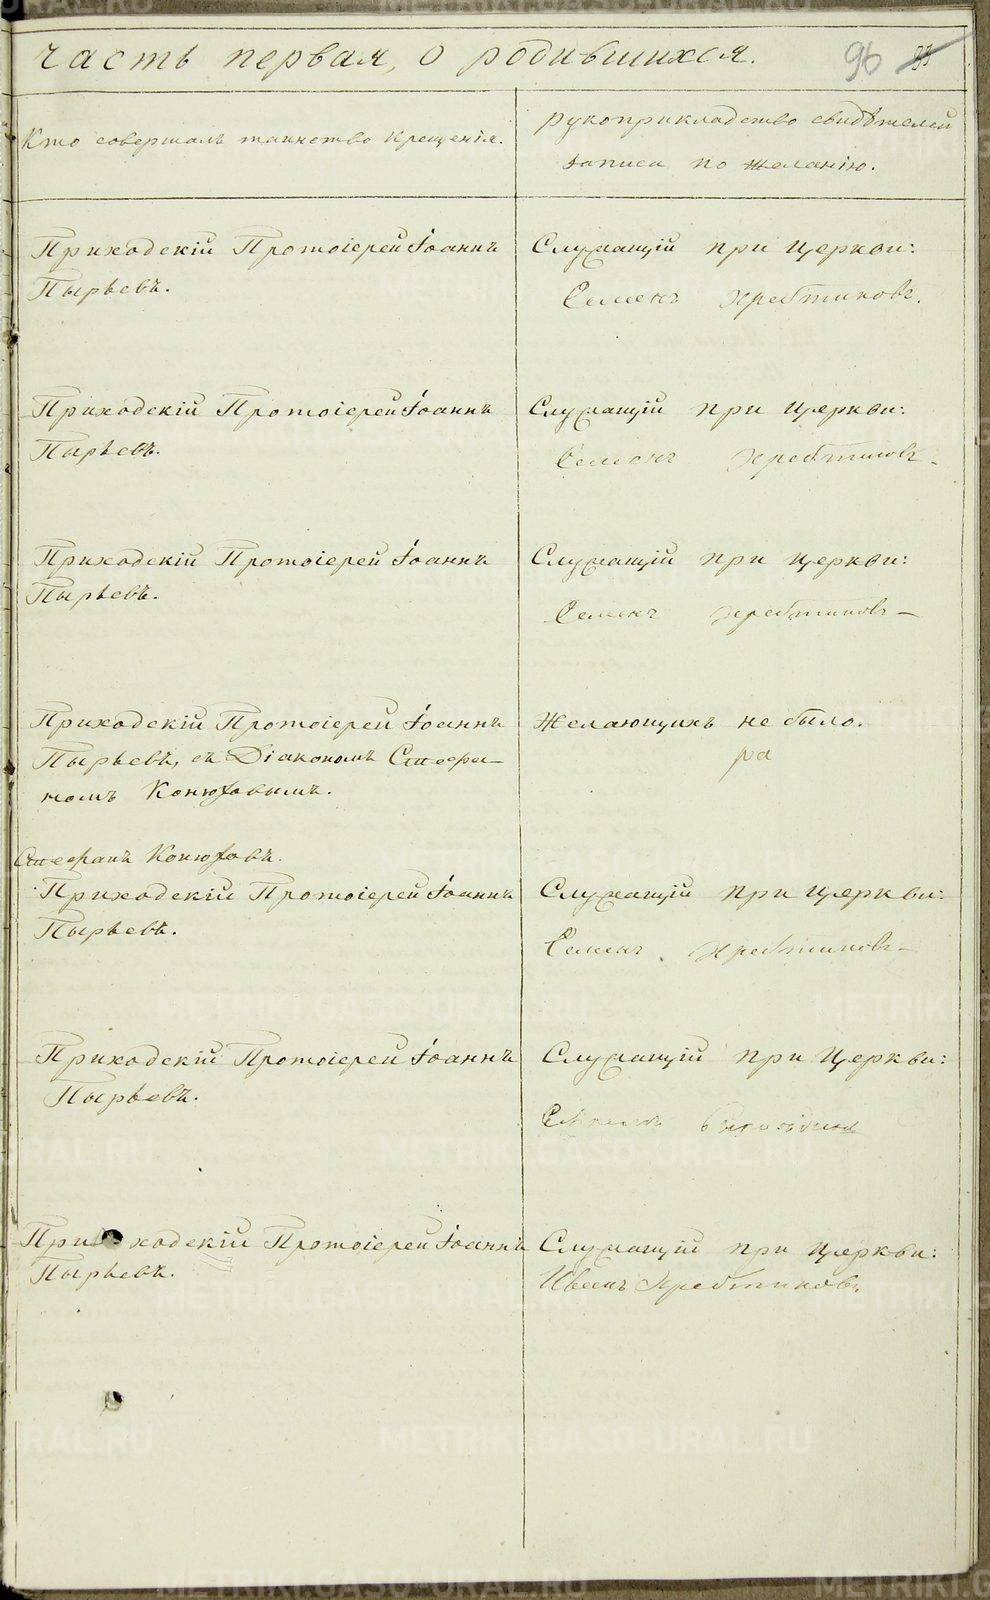 часть первая, о родившихся.
96
Кто совершалъ таинство крещенія.
рукоприкладство свидѣтелей
записи по желанію.
Приходскій Протоіерей Іоаннъ
Пырьевъ.
Служащій при церкви:
Семенъ Хребтиковъ.
Приходскій Протоіерей Іоаннъ
Пырьевъ.
Служащій при церкви:
Семенъ Хребтиковъ
Приходскій Протоіерей Іоаннъ
Пырьевъ.
Служащій при церкви:
Семенъ Хребтиковъ
Приходскій Протоіерей Іоаннъ
Пырьевъ, съ Діакономъ Стефа-
номъ Конюховымъ.
Желающихъ не было.
Стефанъ Конюховъ.
Приходскій Протоіерей Іоаннъ
Пырьевъ.
Служащій при церкви:
Семенъ Хребтиковъ
Приходскій Протоіерей Іоаннъ
Пырьевъ.
Служащій при церкви:
Приходскій Протоіерей Іоаннъ
Пырьевъ.
Служащій при церкви:
Иванъ Хребтиковъ
METRIKI.GASO-URAL.RU